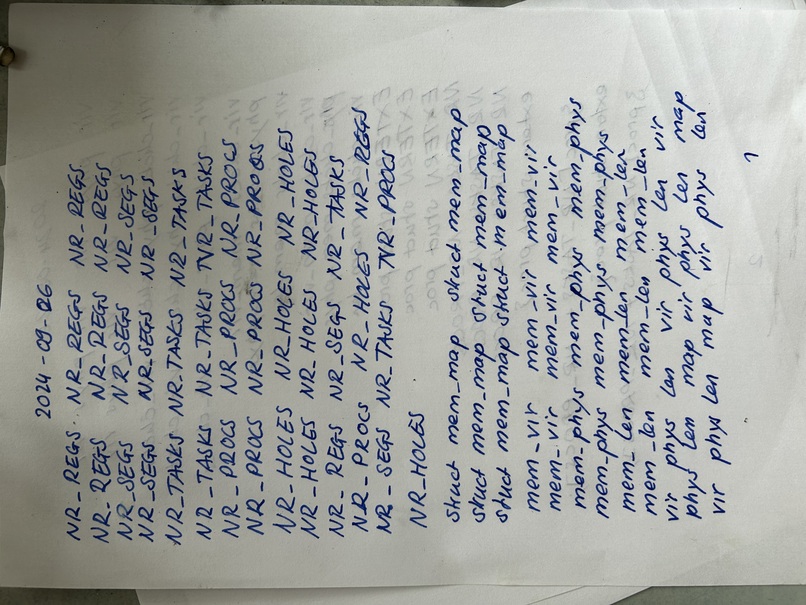 2024-09-06
NR_REGS NR_REGS NR_REGS
NR_REGS NR_REGS NR_REGS
NR_SEGS NR_SEGS NR_SEGS
NR_SEGS NR_SEGS NR_SEGS
NR_TASKS NR_TASKS NR_TASKS
NR_TASKS NR_TASKS NR_TASKS
NR_PROCS NR_PROCS NR_PROCS
NR_PROCS NR_PROCS NR_PROCS
NR_HOLES NR_HOLES NR_HOLES
NR_HOLES NR_HOLES NR_HOLES
NR_REGS NR_SEGS NR_TASKS
NR_PROCS NR_HOLES NR_REGS
NR_SEGS NR_TASKS NR_PROCS
NR_HOLES
struct mem_map struct mem_map
struct mem_map struct mem_map
struct mem_map struct mem_map
mem_vir mem_vir mem_vir
mem_vir mem_vir mem_vir
mem_phys mem_phys mem_phys
mem_phys mem_phys mem_phys
mem_len mem_len mem_len
mem_len mem_len mem_len
vir phys len vir phys len vir
phys len map vir phys len map
vir phys len map vir phys len
1